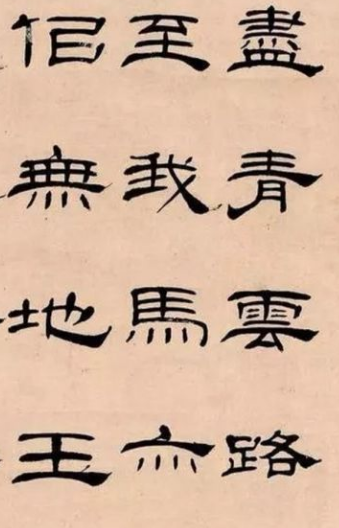 盡青雲路
至我馬亦
佀無地王